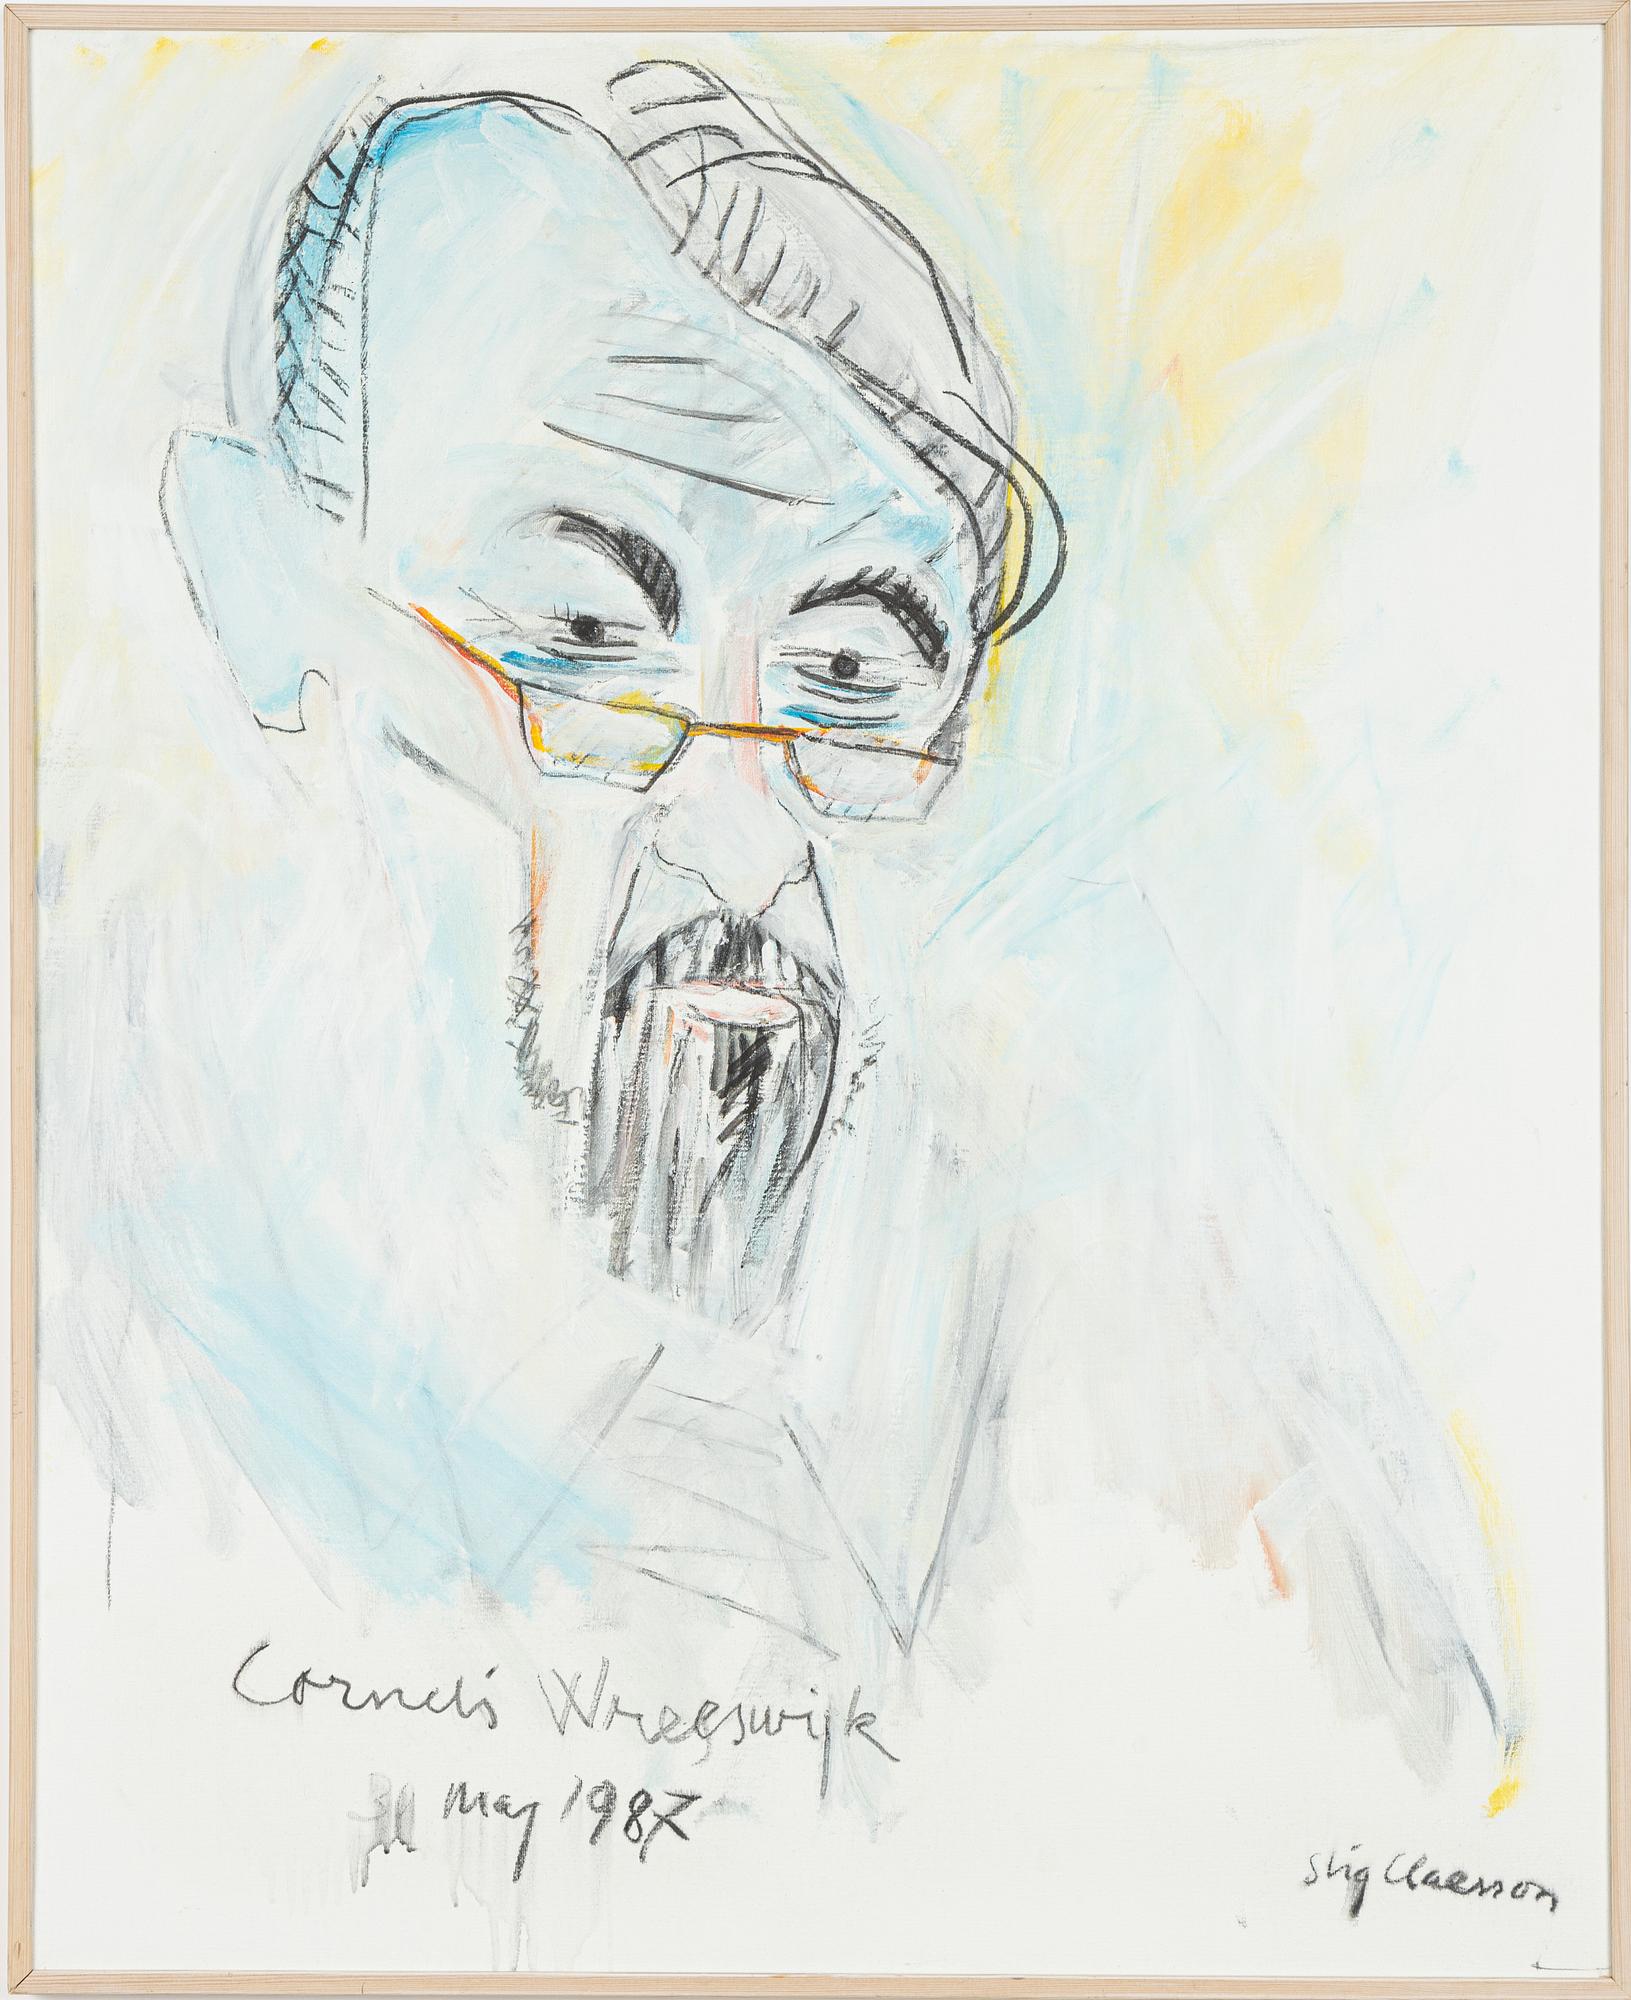 Cornelis Wreeswijk
May 1987
Stig Claesson